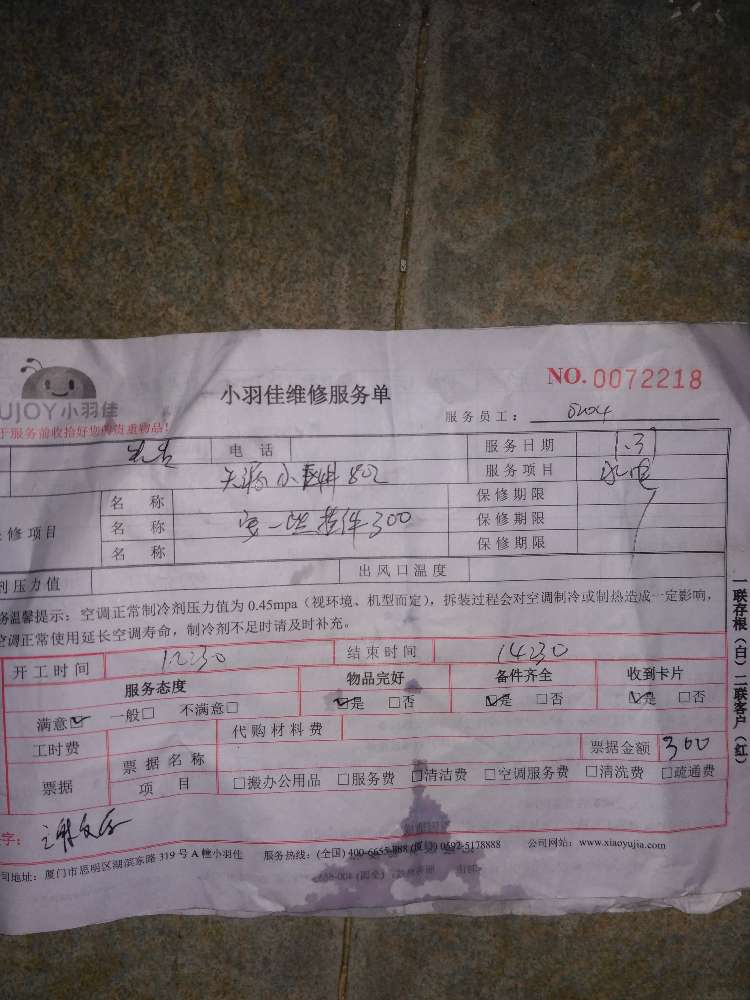 UJOY小羽佳
小羽佳维修服务单
NO. 0072218
于服务前收拾好您的贵重物品!
服务员工:
电话
服务日期 1.3
802
服务项目 水电
名称
保修期限
修项目 名称 300 保修期限
名称
保修期限
剂压力值
出风口温度
务温馨提示:空调正常制冷剂压力值为0.45mpa(视环境、机型而定),拆装过程会对空调制冷或制热造成一定影响,
空调正常使用延长空调寿命,制冷剂不足时请及时补充。
开工时间 12:30 结束时间 14:30
服务态度 物品完好 备件齐全 收到卡片
满意☑ 一般□ 不满意□ ☑是 □否 ☑是 □否 ☑是 □否
工时费 代购材料费
票据 票据名称 票据金额 300
项目 □搬办公用品 □服务费 □清洁费 □空调服务费 □清洗费 □疏通费
字:
司地址:厦门市思明区湖滨东路319号A幢小羽佳 服务热线:(全国)400-6655-888(厦门)0592-5178888 公司网站:www.xiaoyujia.com
一联存根(白)二联客户(红)